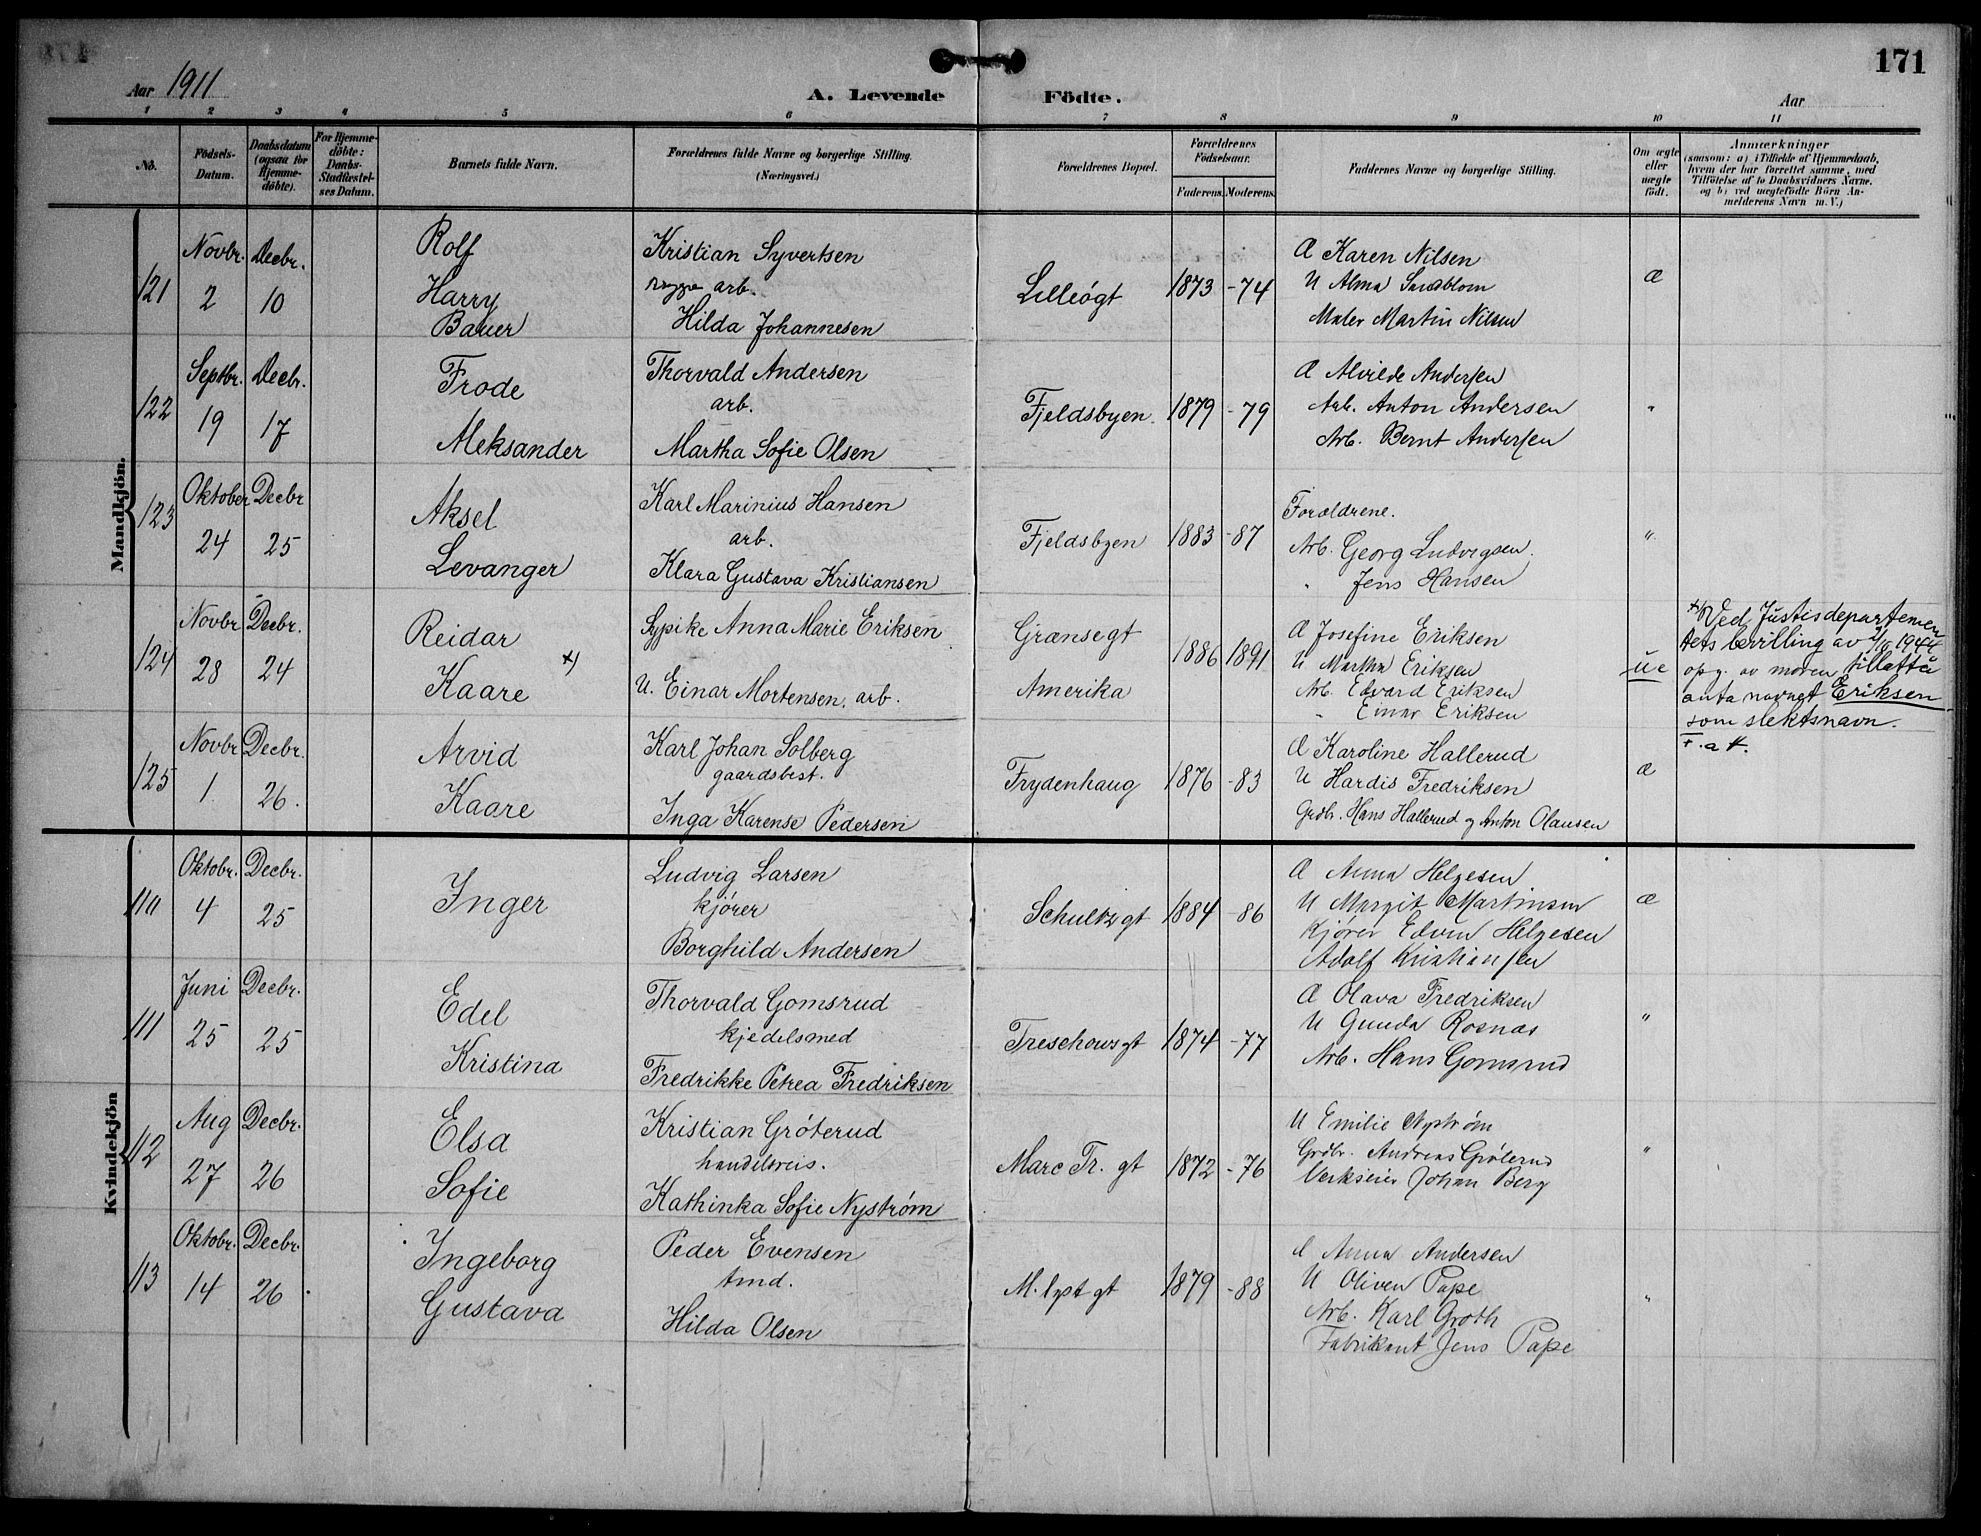 171
Aar 1911
A. Levende Födte.
Aar
1 2 3 4 5 6 7 8 9 10 11
No.
Födsels-Datum.
Daabsdatum (ogsaa for Hjemme-döbte).
For Hjemme-döbte: Daabs-Stadfæstelses Datum.
Barnets fulde Navn.
Forældrenes fulde Navne og borgerlige Stilling. (Næringsvei.)
Forældrenes Bopæl.
Forældrenes Födselsaar.
Faderens. Moderens.
Faddernes Navne og borgerlige Stilling.
Om ægte eller uægte födt.
Anmærkninger
(saasom: a) i Tilfælde af Hjemmedaab, hvem der har forrettet samme, med Tilföielse af to Daabsvidners Navne, og b) ved uægtefödte Börn Anmelderens Navn m. V.)
Mandkjön.
121 Novbr. 2 Decbr. 10
Rolf Harry Bauer
Kristian Syvertsen
arb.
Hilda Johannesen
Lilleøgt 1873 -74
Æ Karen Nilsen
U Alma Sandblom
Maler Martin Nilsen
æ
122 Septbr. 19 Decbr. 17
Frode Aleksander
Thorvald Andersen
arb.
Martha Sofie Olsen
Fjeldsbyen. 1879 -79
Æ Alvilde Andersen
Arb. Anton Andersen
Arb. Bernt Andersen
"
123 Oktober 24 Decbr 25
Aksel Levanger
Karl Marinius Hansen
arb.
Klara Gustava Kristiansen
Fjeldsbyen 1883 -87
Forældrene.
Arb. Georg Ludvigsen.
" Jens Hansen
"
124 Novbr 28 Decbr. 24
Reidar Kaare x)
Sypike Anna Marie Eriksen
U. Einar Mortensen, arb.
Grænsegt
Amerika
1886 1891
Æ Josefine Eriksen
U Martha Eriksen
Arb. Edvard Eriksen
" Einar Eriksen
u e
x) Ved Justisdepartemen
tets bevilling av 1944
opg. av moren tillatt å
anta navnet Eriksen
som slektsnavn.
125 Novbr 1 Decbr. 26.
Arvid Kaare
Karl Johan Solberg
gaardsbest.
Inga Karense Pedersen
Frydenhaug 1876 -83
Æ Karoline Hallerud
U Hardis Fredriksen
Grdbr. Hans Hallerud og Anton Olausen
æ
Kvindekjön
110 Oktobr. 4 Decbr. 25
Inger
Ludvig Larsen
kjører
Borghild Andersen
Schultzgt 1884 -86
Æ Anna Helgesen
U Margit Martinsen
Kjører Edvin Helgesen
Adolf Kristiansen
æ
111 Juni 25 Decbr. 25
Edel Kristina
Thorvald Gomsrud
kjedelsmed
Fredrikke Petrea Fredriksen
Treschows gt 1874 -77
Æ Olava Fredriksen
U Gunda Rosnæs
Arb. Hans Gomsrud
"
112 Aug 27 Decbr. 26
Elsa Sofie
Kristian Grøterud
handelsreis.
Kathinka Sofie Nystrøm
Marc Tr. gt 1872 -76
U Emilie Nystrøm
Grdbr. Andreas Grøterud
Verkseier Johan Berg
"
113 Oktobr. 14 Decbr. 26
Ingeborg Gustava
Peder Evensen
tmd.
Hilda Olsen
gt 1879 -88
Æ Anna Andersen
U Oliven Pape
Arb. Karl Groth
Fabrikant Jens Pape
"